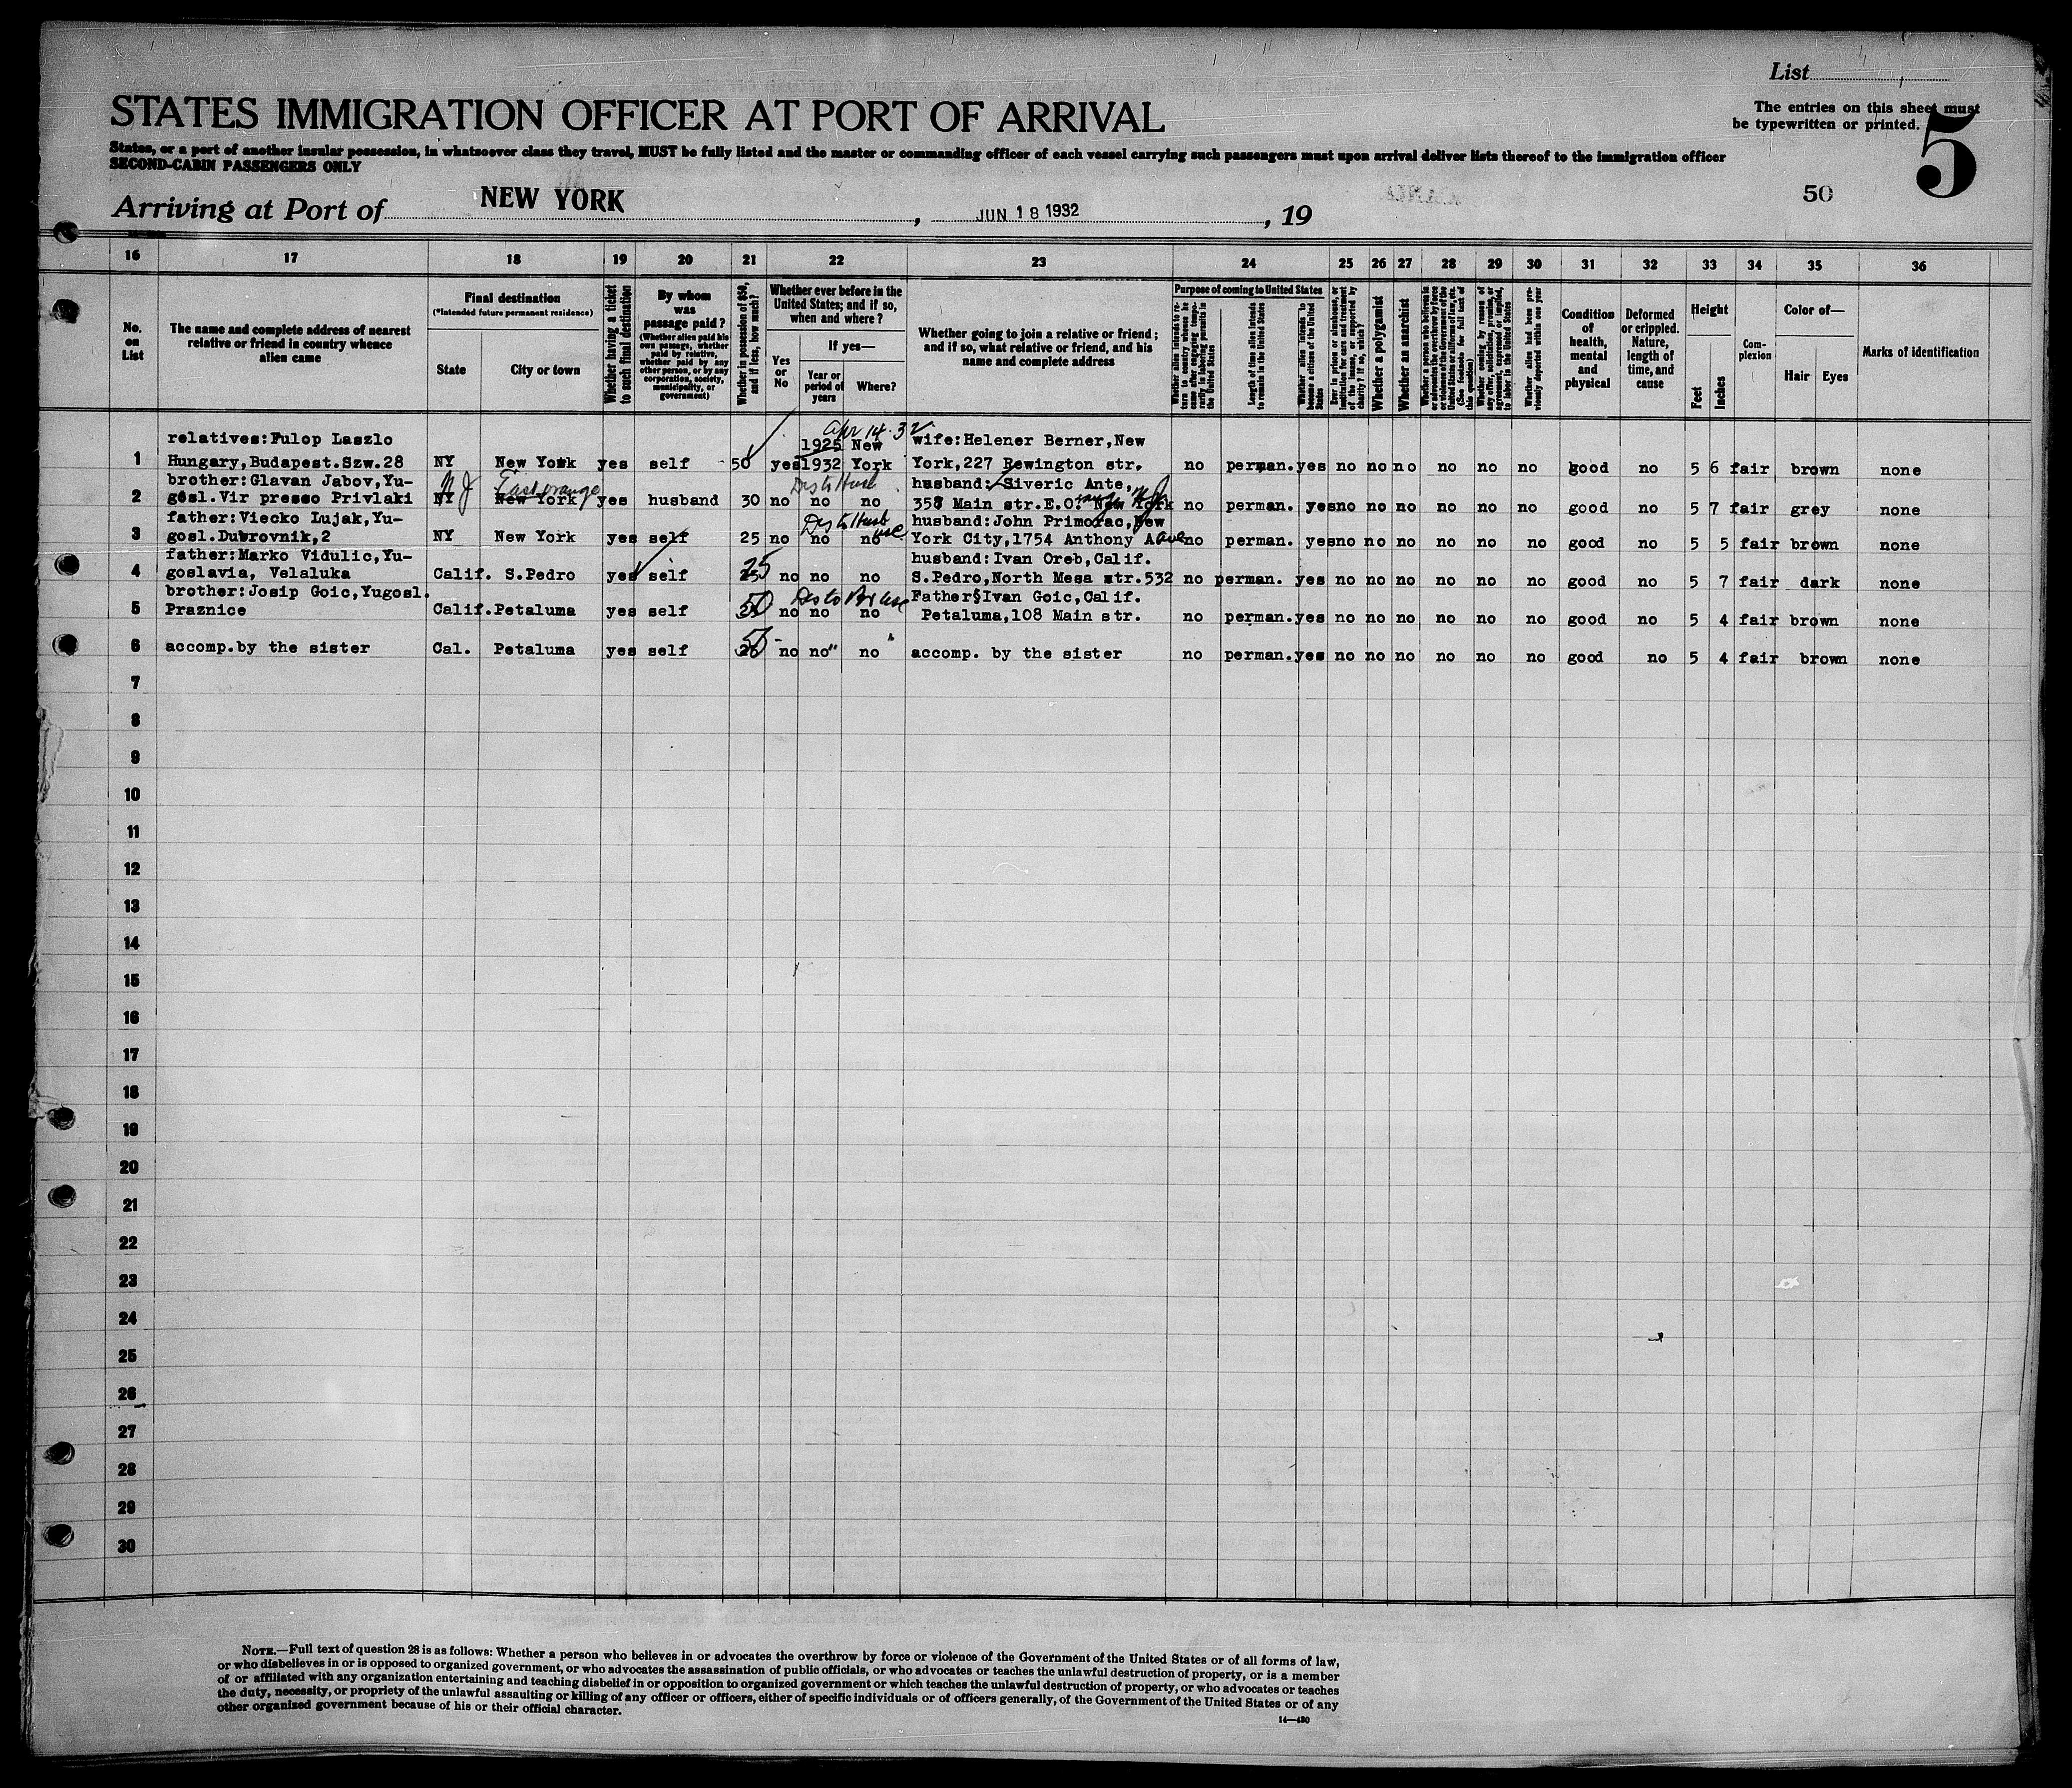 List
STATES IMMIGRATION OFFICER AT PORT OF ARRIVAL
The entries on this sheet must
be typewritten or printed.
5
States, or a port of another insular possession, in whatsoever class they travel, MUST be fully listed and the master or commanding officer of each vessel carrying such passengers must upon arrival deliver lists thereof to the immigration officer
SECOND-CABIN PASSENGERS ONLY
Arriving at Port of NEW YORK, JUN 18 1932, 19
50
16 17 18 19 20 21 22 23 24 25 26 27 28 29 30 31 32 33 34 35 36
No. on List
The name and complete address of nearest relative or friend in country whence alien came
Final destination
(*Intended future permanent residence)
State
City or town
Whether having a ticket to such final destination
By whom was passage paid?
(Whether alien paid his own passage, whether paid by relative, whether paid by any other person, or by any corporation, society, municipality, or government)
Whether in possession of $50, and if less, how much?
Whether ever before in the United States; and if so, when and where?
Yes or No
If yes—
Year or period of years
Where?
Whether going to join a relative or friend; and if so, what relative or friend, and his name and complete address
Purpose of coming to United States
Whether alien intends to return to country whence he came after engaging temporarily in laboring pursuits in the United States
Length of time alien intends to remain in the United States
Whether alien intends to become a citizen of the United States
Ever in prison or almshouse, or institution for care and treatment of the insane, or supported by charity? If so, which?
Whether a polygamist
Whether an anarchist
Whether a person who believes in or advocates the overthrow by force or violence of the Government of the United States or all forms of law, etc. (See footnote for full text of this question)
Whether coming by reason of any offer, solicitation, promise, or agreement, expressed or implied, to labor in the United States
Whether alien had been previously deported within one year
Condition of health, mental and physical
Deformed or crippled. Nature, length of time, and cause
Height
Feet
Inches
Complexion
Color of—
Hair Eyes
Marks of identification
relatives:Fulop Laszlo 1925 New Apr 14-32 wife:Helener Berner,New
1 Hungary,Budapest.Szw.28 NY New York yes self 50 yes 1932 York York,227 Rewington str. no perman. yes no no no no no no good no 5 6 fair brown none
brother:Glavan Jabov,Yu- N J East orange Dis to Husb husband: Siveric Ante,
2 gosl.Vir presso Privlaki NY New York yes husband 30 no no no 358 Main str.E.O. New York no perman. yes no no no no no no good no 5 7 fair grey none
father:Viecko Lujak,Yu- Dis to Husb husband:John Primorac,New
3 gosl.Dubrovnik,2 NY New York yes self 25 no no no York City,1754 Anthony Ave no perman. yes no no no no no no good no 5 5 fair brown none
father:Marko Vidulic,Yu- 25 husband:Ivan Oreb,Calif.
4 goslavia, Velaluka Calif. S.Pedro yes self no no no S.Pedro,North Mesa str.532 no perman. yes no no no no no no good no 5 7 fair dark none
brother:Josip Goic,Yugosl. 50 Dis to Father:Ivan Goic,Calif.
5 Praznice Calif. Petaluma yes self no no no Petaluma,108 Main str. no perman. yes no no no no no no good no 5 4 fair brown none
6 accomp.by the sister Cal. Petaluma yes self no no " no " accomp. by the sister no perman. yes no no no no no no good no 5 4 fair brown none
7
8
9
10
11
12
13
14
15
16
17
18
19
20
21
22
23
24
25
26
27
28
29
30
NOTE.—Full text of question 28 is as follows: Whether a person who believes in or advocates the overthrow by force or violence of the Government of the United States or of all forms of law,
or who disbelieves in or is opposed to organized government, or who advocates the assassination of public officials, or who advocates or teaches the unlawful destruction of property, or is a member
of or affiliated with any organization entertaining and teaching disbelief in or opposition to organized government or which teaches the unlawful destruction of property, or who advocates or teaches
the duty, necessity, or propriety of the unlawful assaulting or killing of any officer or officers, either of specific individuals or of officers generally, of the Government of the United States or of any
other organized government because of his or their official character.
14—430